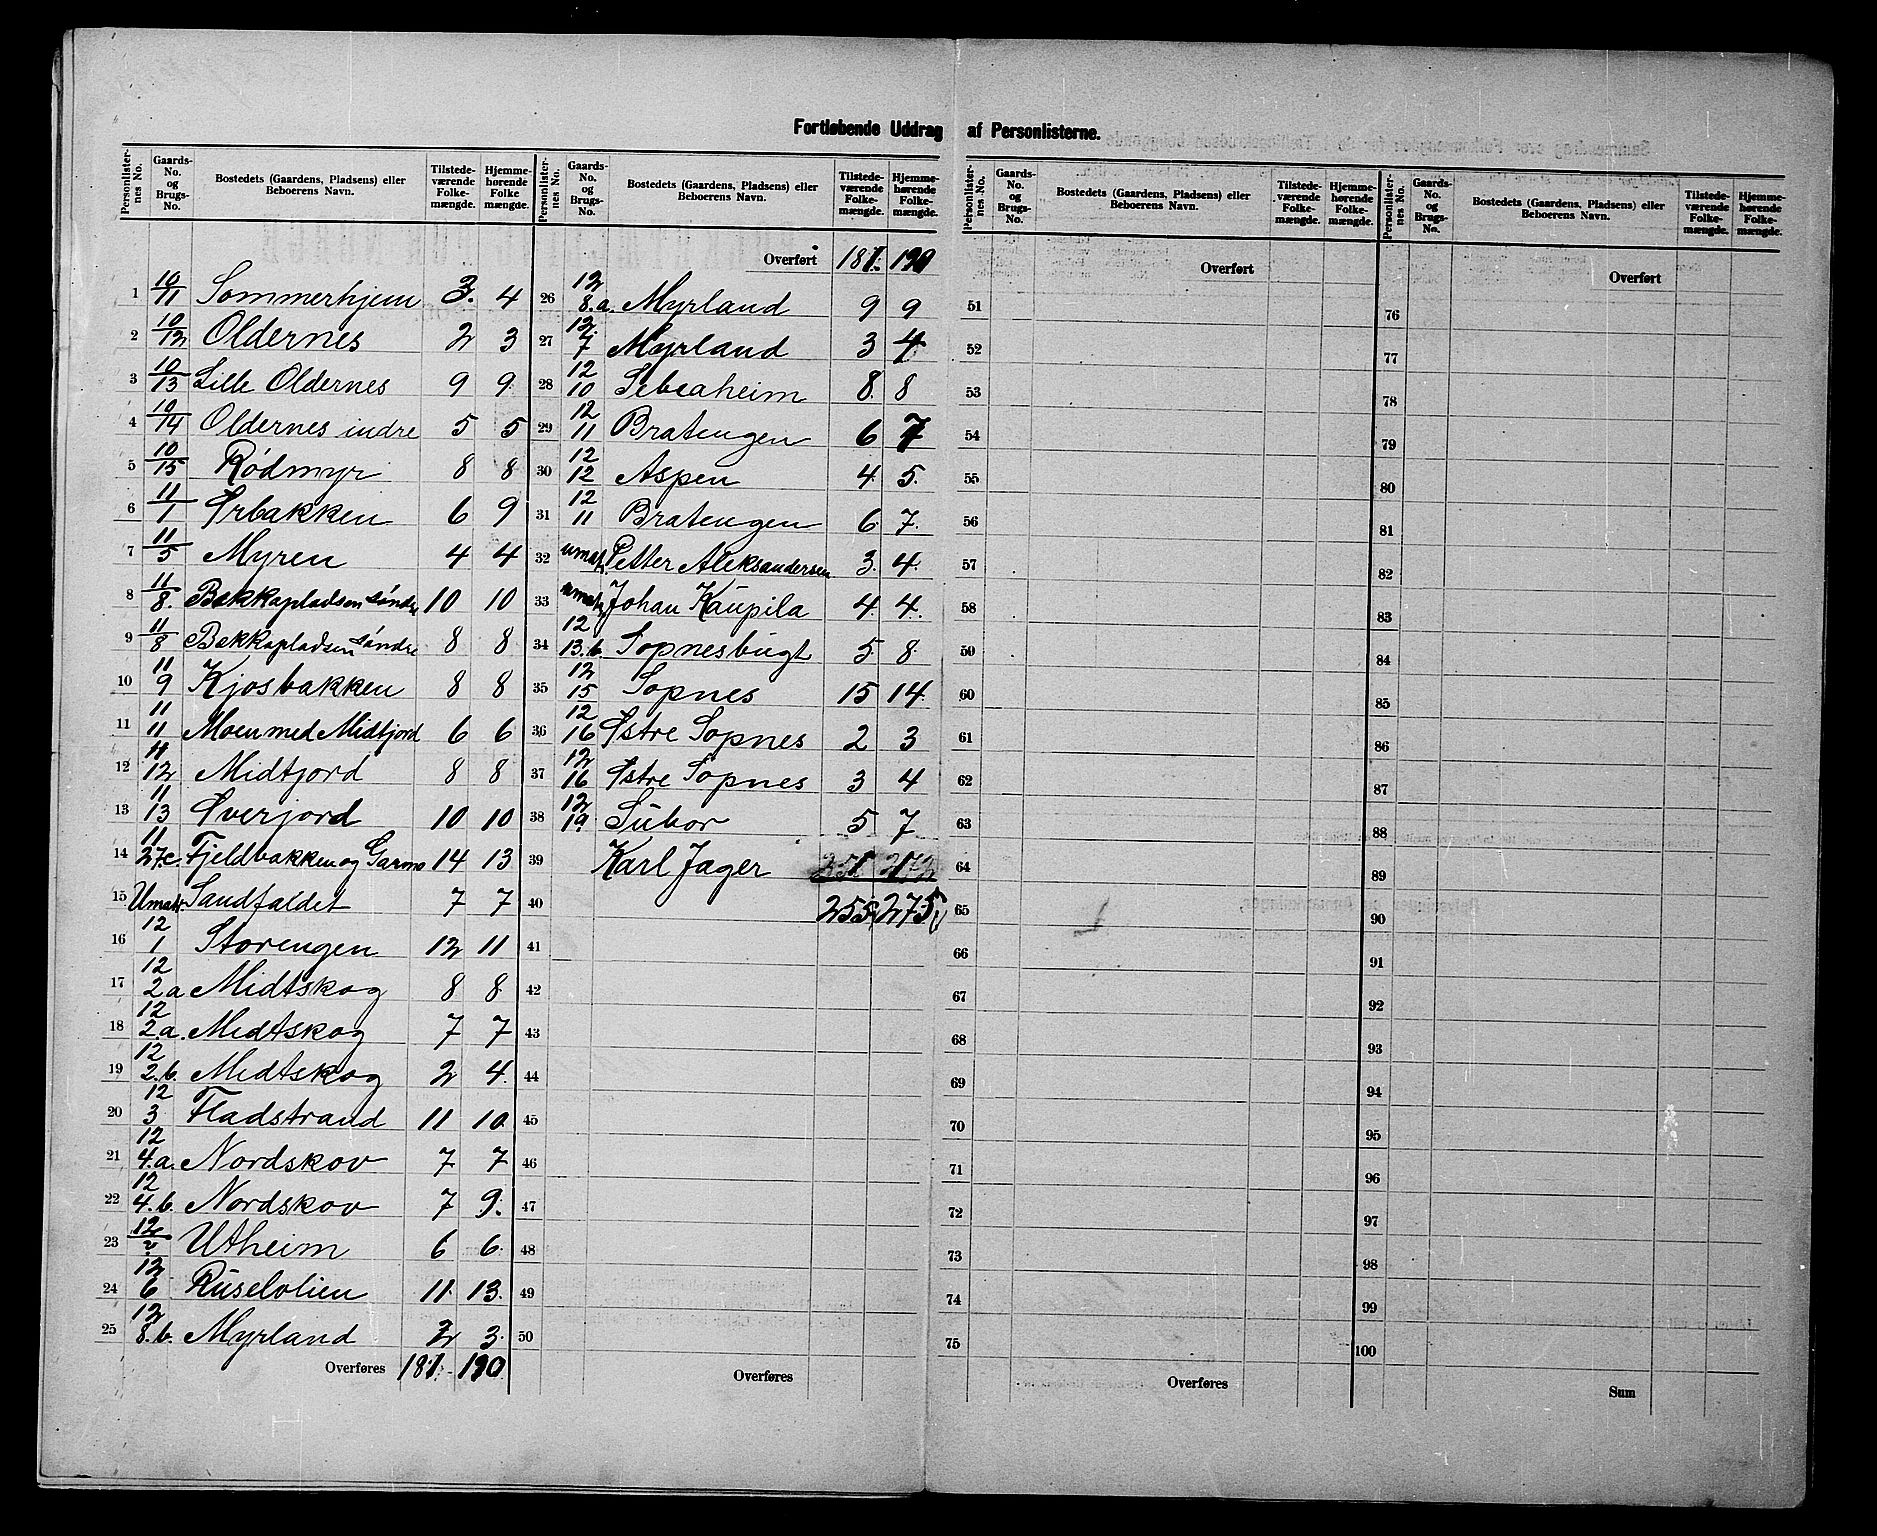 Fortløbende Uddrag af Personlisterne.
Personlister- nes No. | Gaards- No. og Brugs- No. | Bostedets (Gaardens, Pladsens) eller Beboerens Navn. | Tilstede- værende Folke- mængde. | Hjemme- hørende Folke- mængde.
1 10/11 Sommerhjem 3. 4
2 10/12 Oldernes 2 3
3 10/13 Lille Oldernes 9 9
4 10/14 Oldernes indre 5 5
5 10/15 Rødmyr 8 8
6 11/1 Ørbakken 6 9
7 11/5 Myren 4 4
8 11/8. Bakkapladsen søndre 10 10
9 11/8 Bakkapladsen søndre 8 8
10 11/9 Kjosbakken 8 8
11 11/11 Moen med Midtfjord 6 6
12 11/12 Midtfjord 8 8
13 11/13 Øverjord 10 10
14 11/27c. Fjeldbakken og Garmo 14 13
15 Umatr. Sandfaldet 7 7
16 12/1 Storengen 12 11
17 12/2a Midtskog 8 8
18 12/2.a. Midtskog 7 7
19 12/2.b. Midtskog 2 4.
20 12/3 Fladstrand 11 10
21 12/4.a. Nordskov 7 7
22 12/4.b. Nordskov 7 9.
23 12/ Utheim 6 6
24 12/6 Ruselvlien 11 13.
25 12/8.b. Myrland 2 3
Overføres 181. 190
Personlister- nes No. | Gaards- No. og Brugs- No. | Bostedets (Gaardens, Pladsens) eller Beboerens Navn. | Tilstede- værende Folke- mængde. | Hjemme- hørende Folke- mængde.
Overført 181. 190
26 12/8.a. Myrland 9 9
27 12/7 Myrland 3 4
28 12/10 8. 8
29 12/11 Bratengen 6 7
30 12/12 Aspen 4. 5.
31 12/11 Bratengen 6 7.
32 umatr. Petter Aleksandersen 3. 4.
33 umatr. Johan Kaupila 4. 4.
34 12/13.b. Sopnesbugt 5 8
35 12/15 Sopnes 15 14
36 12/16 Østre Sopnes 2 3
37 12/16 Østre Sopnes 3 4
38 12/19 Subor 5 7
39 Karl Jager 251 272
40 255 275
41
42
43
44
45
46
47
48
49
50
Overføres
Personlister- nes No. | Gaards- No. og Brugs- No. | Bostedets (Gaardens, Pladsens) eller Beboerens Navn. | Tilstede- værende Folke- mængde. | Hjemme- hørende Folke- mængde.
Overført
51
52
53
54
55
56
57
58
59
60
61
62
63
64
65
66
67
68
69
70
71
72
73
74
75
Overføres
Personlister- nes No. | Gaards- No. og Brugs- No. | Bostedets (Gaardens, Pladsens) eller Beboerens Navn. | Tilstede- værende Folke- mængde. | Hjemme- hørende Folke- mængde.
Overført
76
77
78
79
80
81
82
83
84
85
86
87
88
89
90
91
92
93
94
95
96
97
98
99
100
Sum